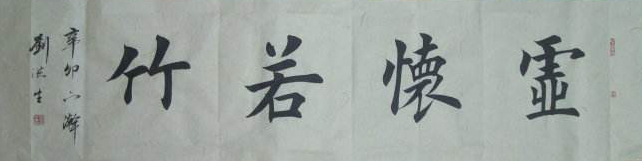 虛懷若竹
辛卯六
劉洪生